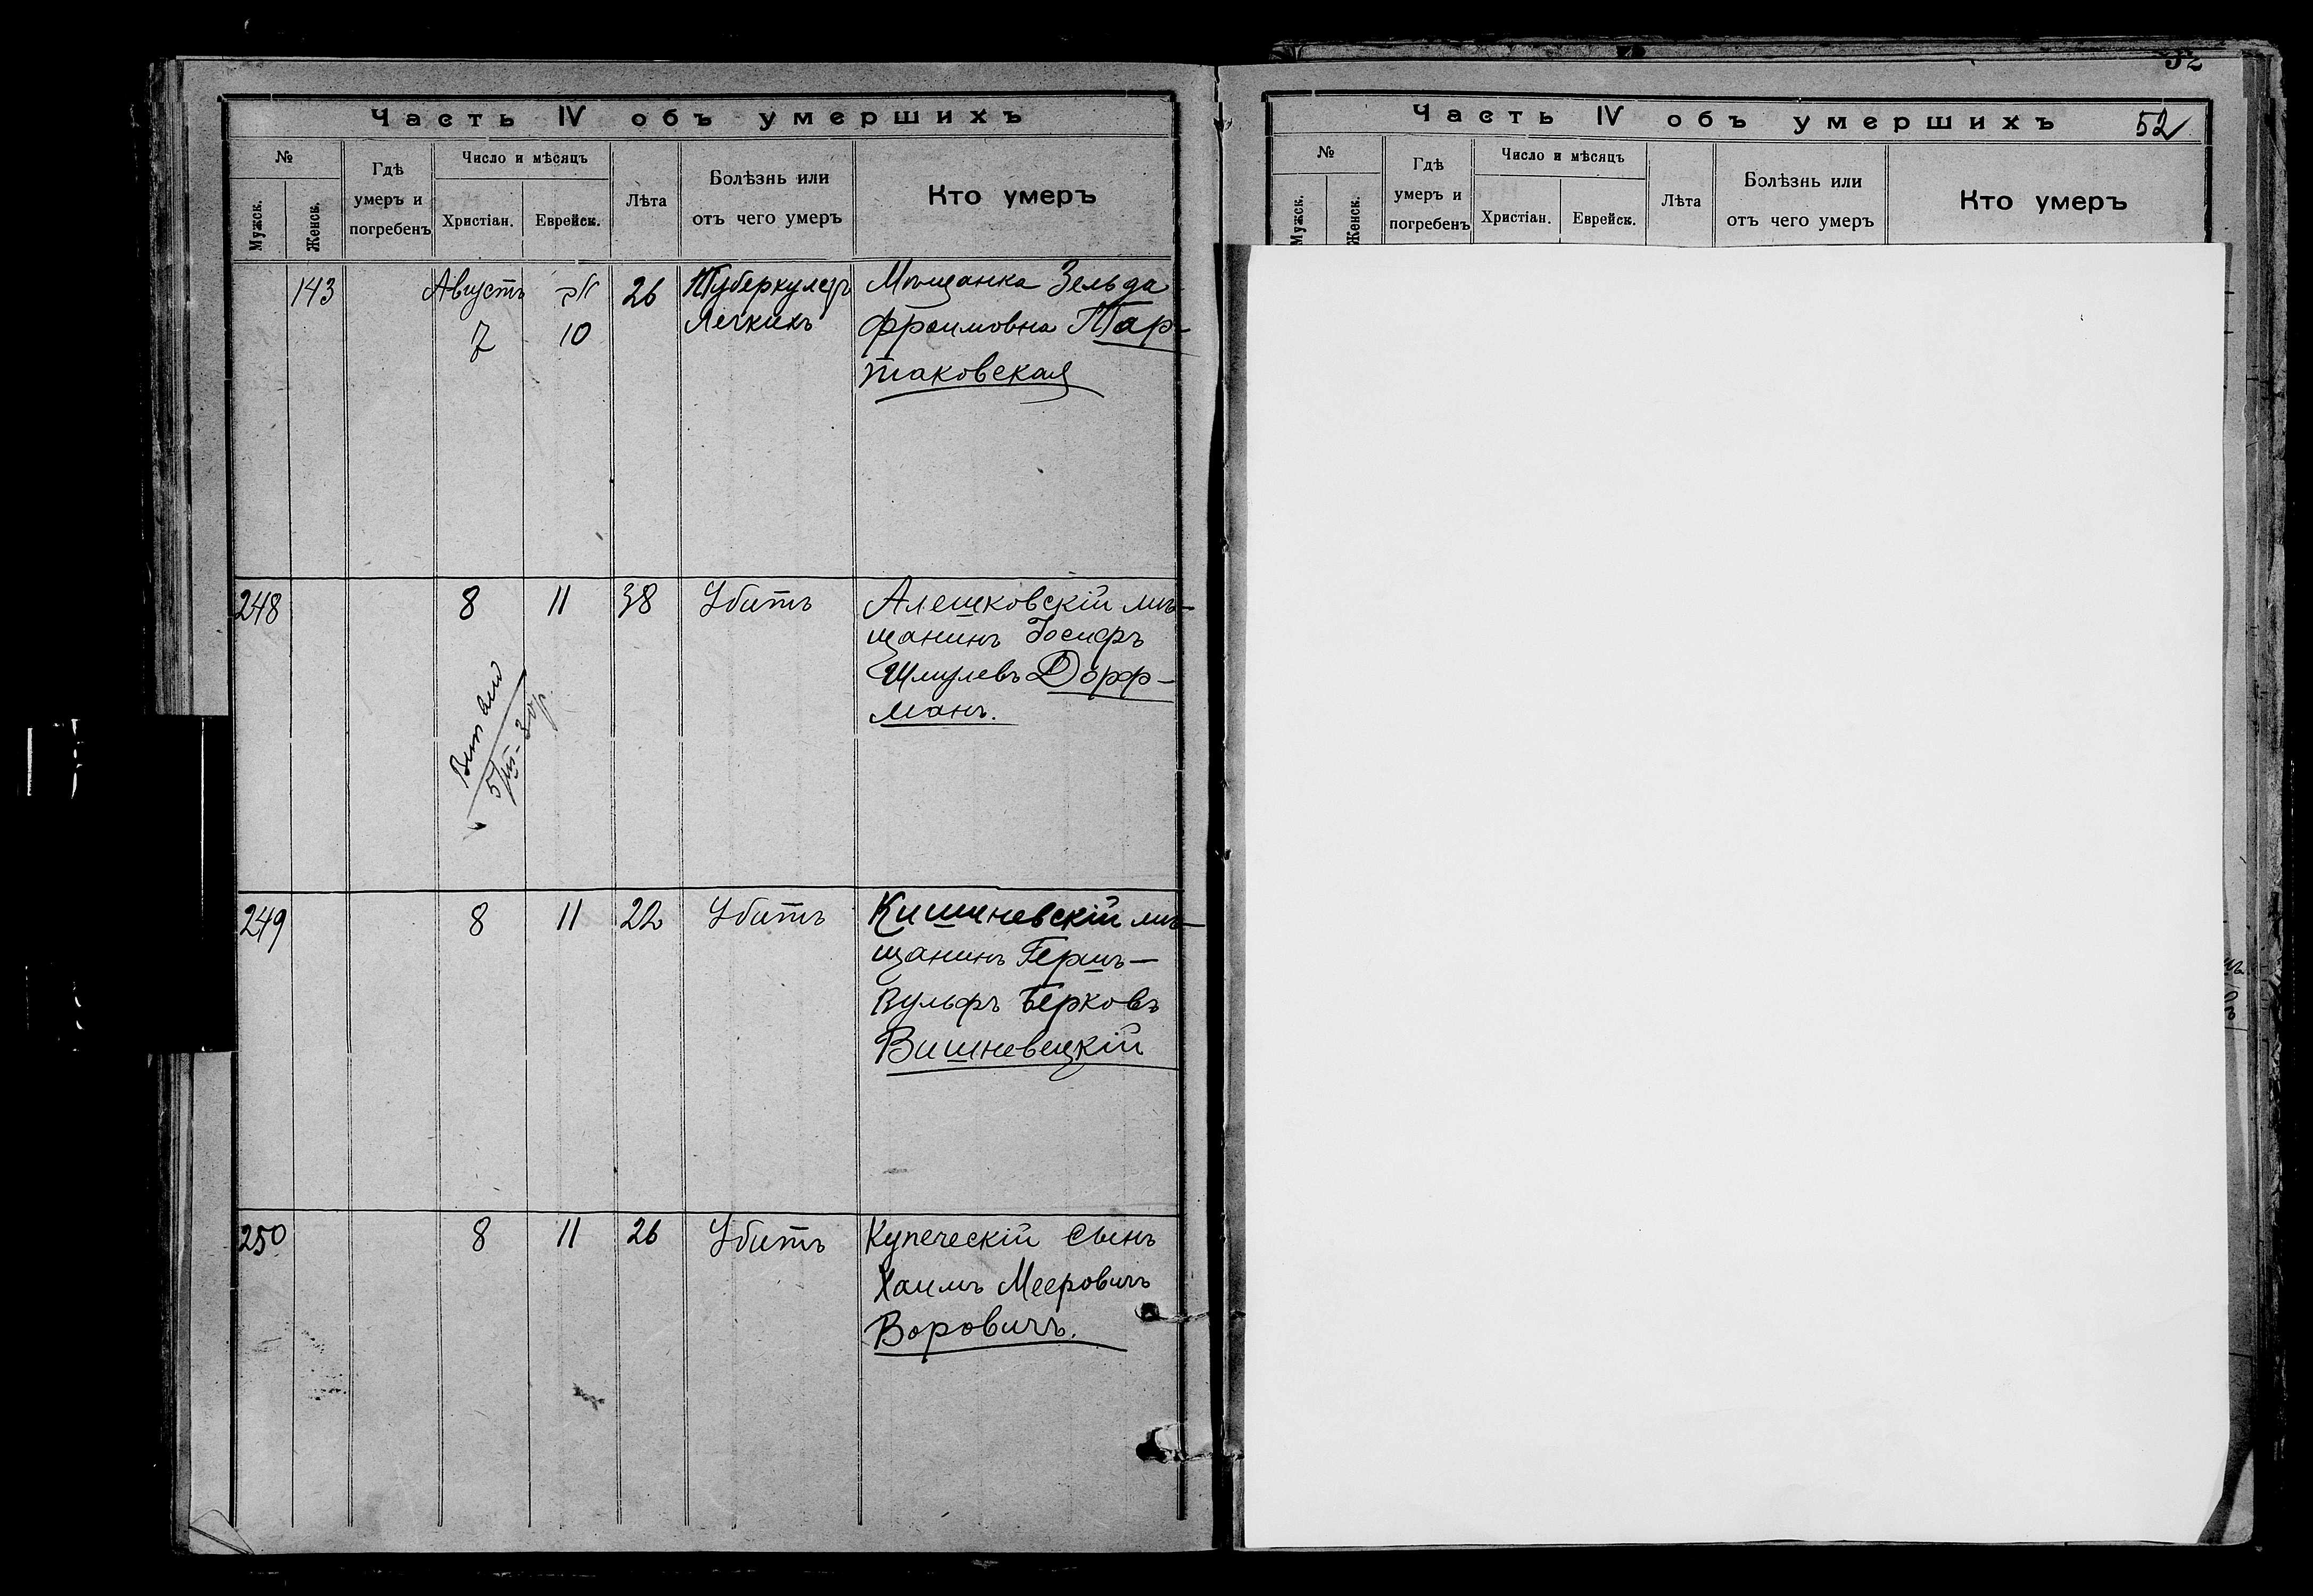 Часть IV объ умершихъ
№
Мужск.
Женск.
Гдѣ
умеръ и
погребенъ
Число и мѣсяцъ
Христіан.
Еврейск.
Лѣта
Болѣзнь или
отъ чего умеръ
Кто умеръ
143
Августъ
7
אב
10
26
Туберкулезъ
Легкихъ
Мѣщанка Зельда
Фроимовна Тар-
таковская
248
8
11
38
Убитъ
Алешковскій мѣ-
щанинъ Іосифъ
Шмулевъ Дорф-
манъ.
249
8
11
22
Убитъ
Кишиневскій мѣ-
щанинъ Гершъ-
Вульфъ Берковъ
Вишневецкій
250
8
11
26
Убитъ
Купеческій сынъ
Хаимъ Мееровичъ
Воровичъ.
52
Часть IV объ умершихъ
52
№
Мужск.
Женск.
Гдѣ
умеръ и
погребенъ
Число и мѣсяцъ
Христіан.
Еврейск.
Лѣта
Болѣзнь или
отъ чего умеръ
Кто умеръ